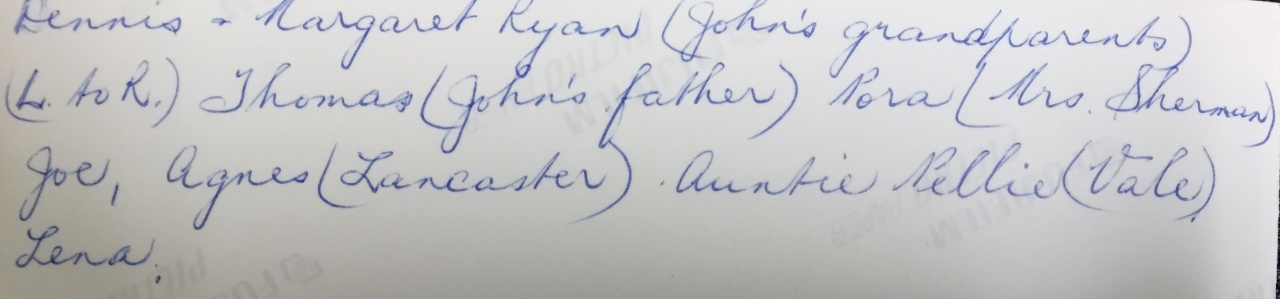 Dennis - Margaret Ryan (John's grandparents)
(L. to R.) Thomas (John's father) Nora (Mrs. Sherman)
Joe, Agnes (Lancaster). Auntie Nellie (Vale),
Lena.